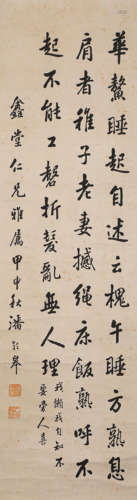 華鰲睡起自述云槐午睡方熟息
肩者稚子老妻撼绳床飯熟呼不
起不能工磬折髮亂無人理
我懶我自知不
要常人喜
鑫堂仁兄雅屬甲申秋潘齡皋